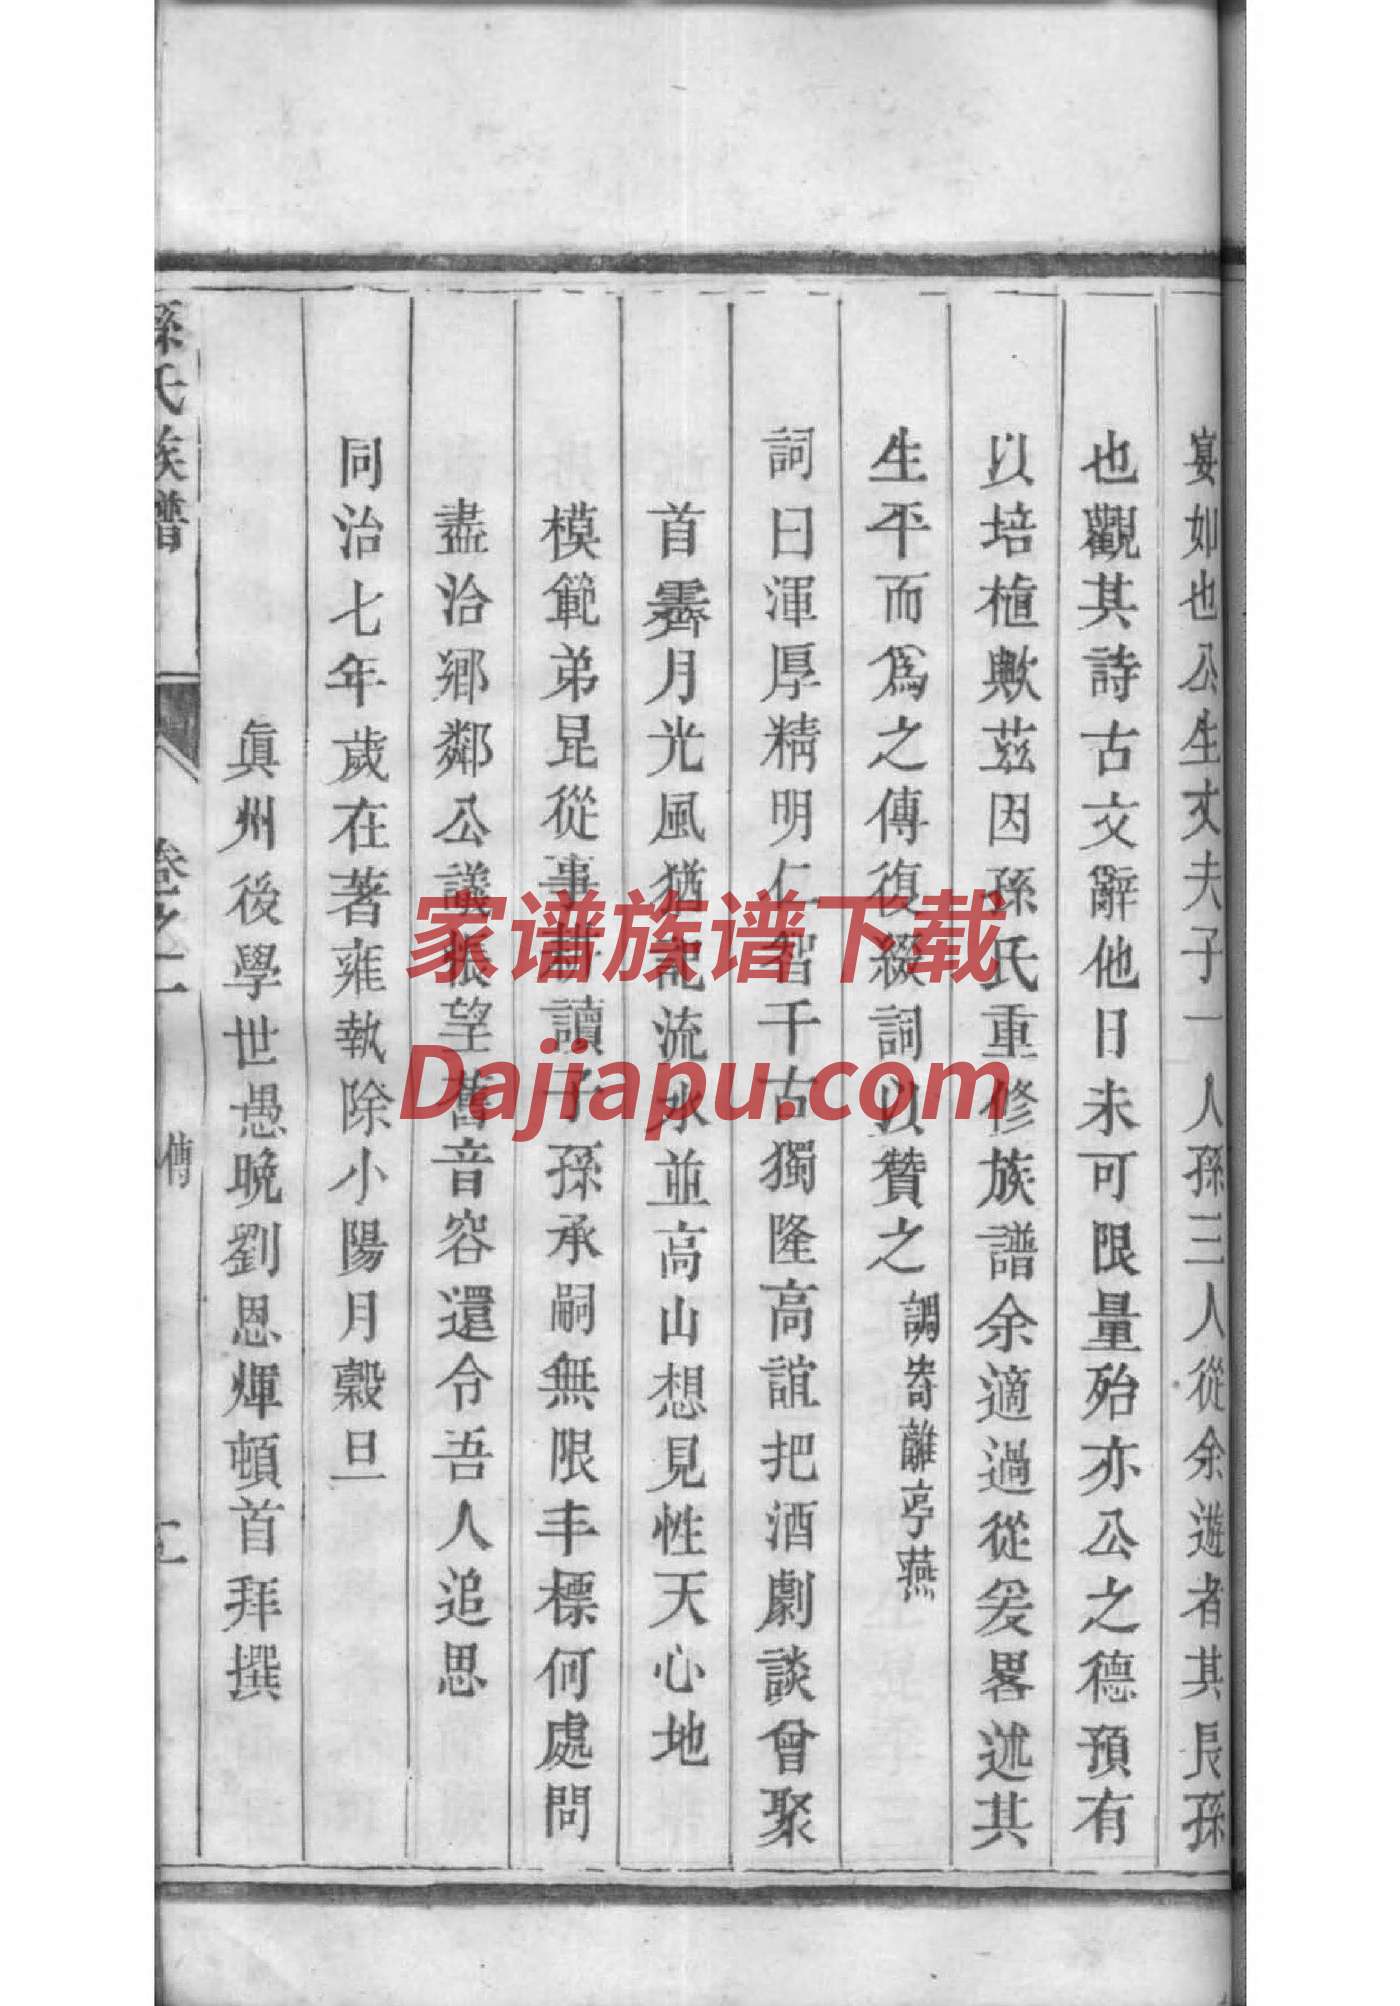 宴如也公生丈夫子一人孫三人從余遊者其長孫
也觀其詩古文辭他日未可限量殆亦公之德預有
以培植歟茲因孫氏重修族譜余適過從爰畧述其
生平而爲之傳復綴詞以贊之 調寄離亭燕
詞曰渾厚精明仁智千古獨隆高誼把酒劇談曾聚
首霽月光風猶記流水並高山想見性天心地
模範弟昆從事耕讀子孫承嗣無限丰標何處問
盡洽鄉鄰公議悵望舊音容還令吾人追思
同治七年歲在著雍執除小陽月穀旦
眞州後學世愚晚劉恩煇頓首拜撰
孫氏族譜
卷之一
傳
家谱族谱下载
Dajiapu.com